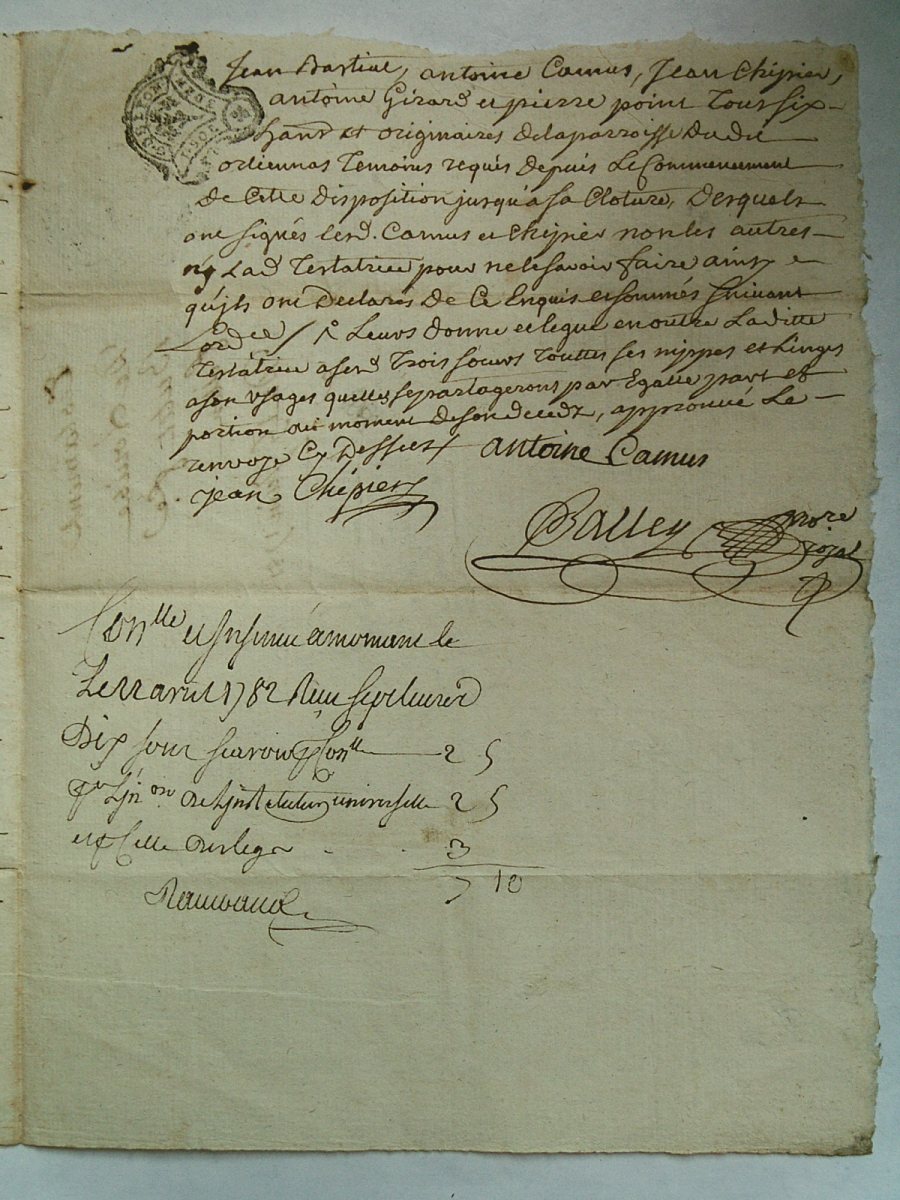 Jean Bastiat, antoine Camus, Jean Chipier,
antoine Girard et pierre point Tous six
hant et originaires delaparroisse Dudit
orliennas Temoins requis depuis Le Commencement
De Cette Disposition jusqu'a sa Cloture, Desquels
ont signés lesd. Camus et Chipier non les autres
ny Lad Testatrice pour ne le savoir faire ainsy
qu'ils ont Declarés De Ce Enquis et sommés suivant
Lordce / Leurs donne et legue en outre Laditte
Testatrice a sesd Trois soeurs Touttes ses nippes et Linges
a son Usages quelles se partagerons par Egalle part et
portion au moment de son decedz, approuvé Le
renvoye Cy Dessus antoine Camus
jean Chépier
Balley nore
royal
Conlle et Insinué a mornant le
Le 22 avril 1782 Receu sept livres
Dix sous scavoir pr Conlle 2 5
pr Lin on De Linstitution universelle 2 5
et pr Celle Des legs 3
7 10